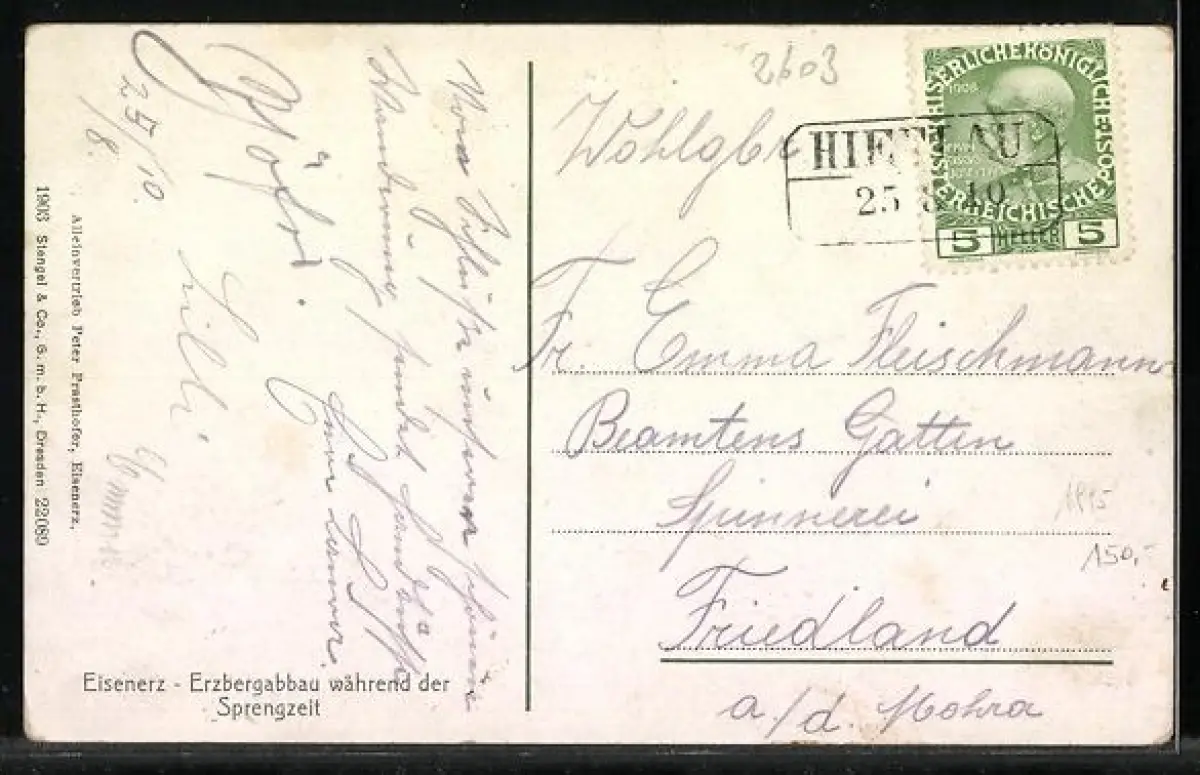 25/10.
8.
Vom Schluße unserer schönen
Wanderung sendet
Lilli
1903 Stengel & Co., G. m. b. H., Dresden 22089
Alleinvertrieb Peter Prasthofer, Eisenerz.
Eisenerz - Erzbergabbau während der
Sprengzeit
2603
KAISERLICHE KÖNIGLICHE ÖSTERREICHISCHE
1908
5 HELLER 5
HIEFLAU
25 8 10
Wohlgb
Fr. Emma Fleischmann
Beamtens Gatten
Spinnerei
Friedland
a/d. Mohra
1895
150,-